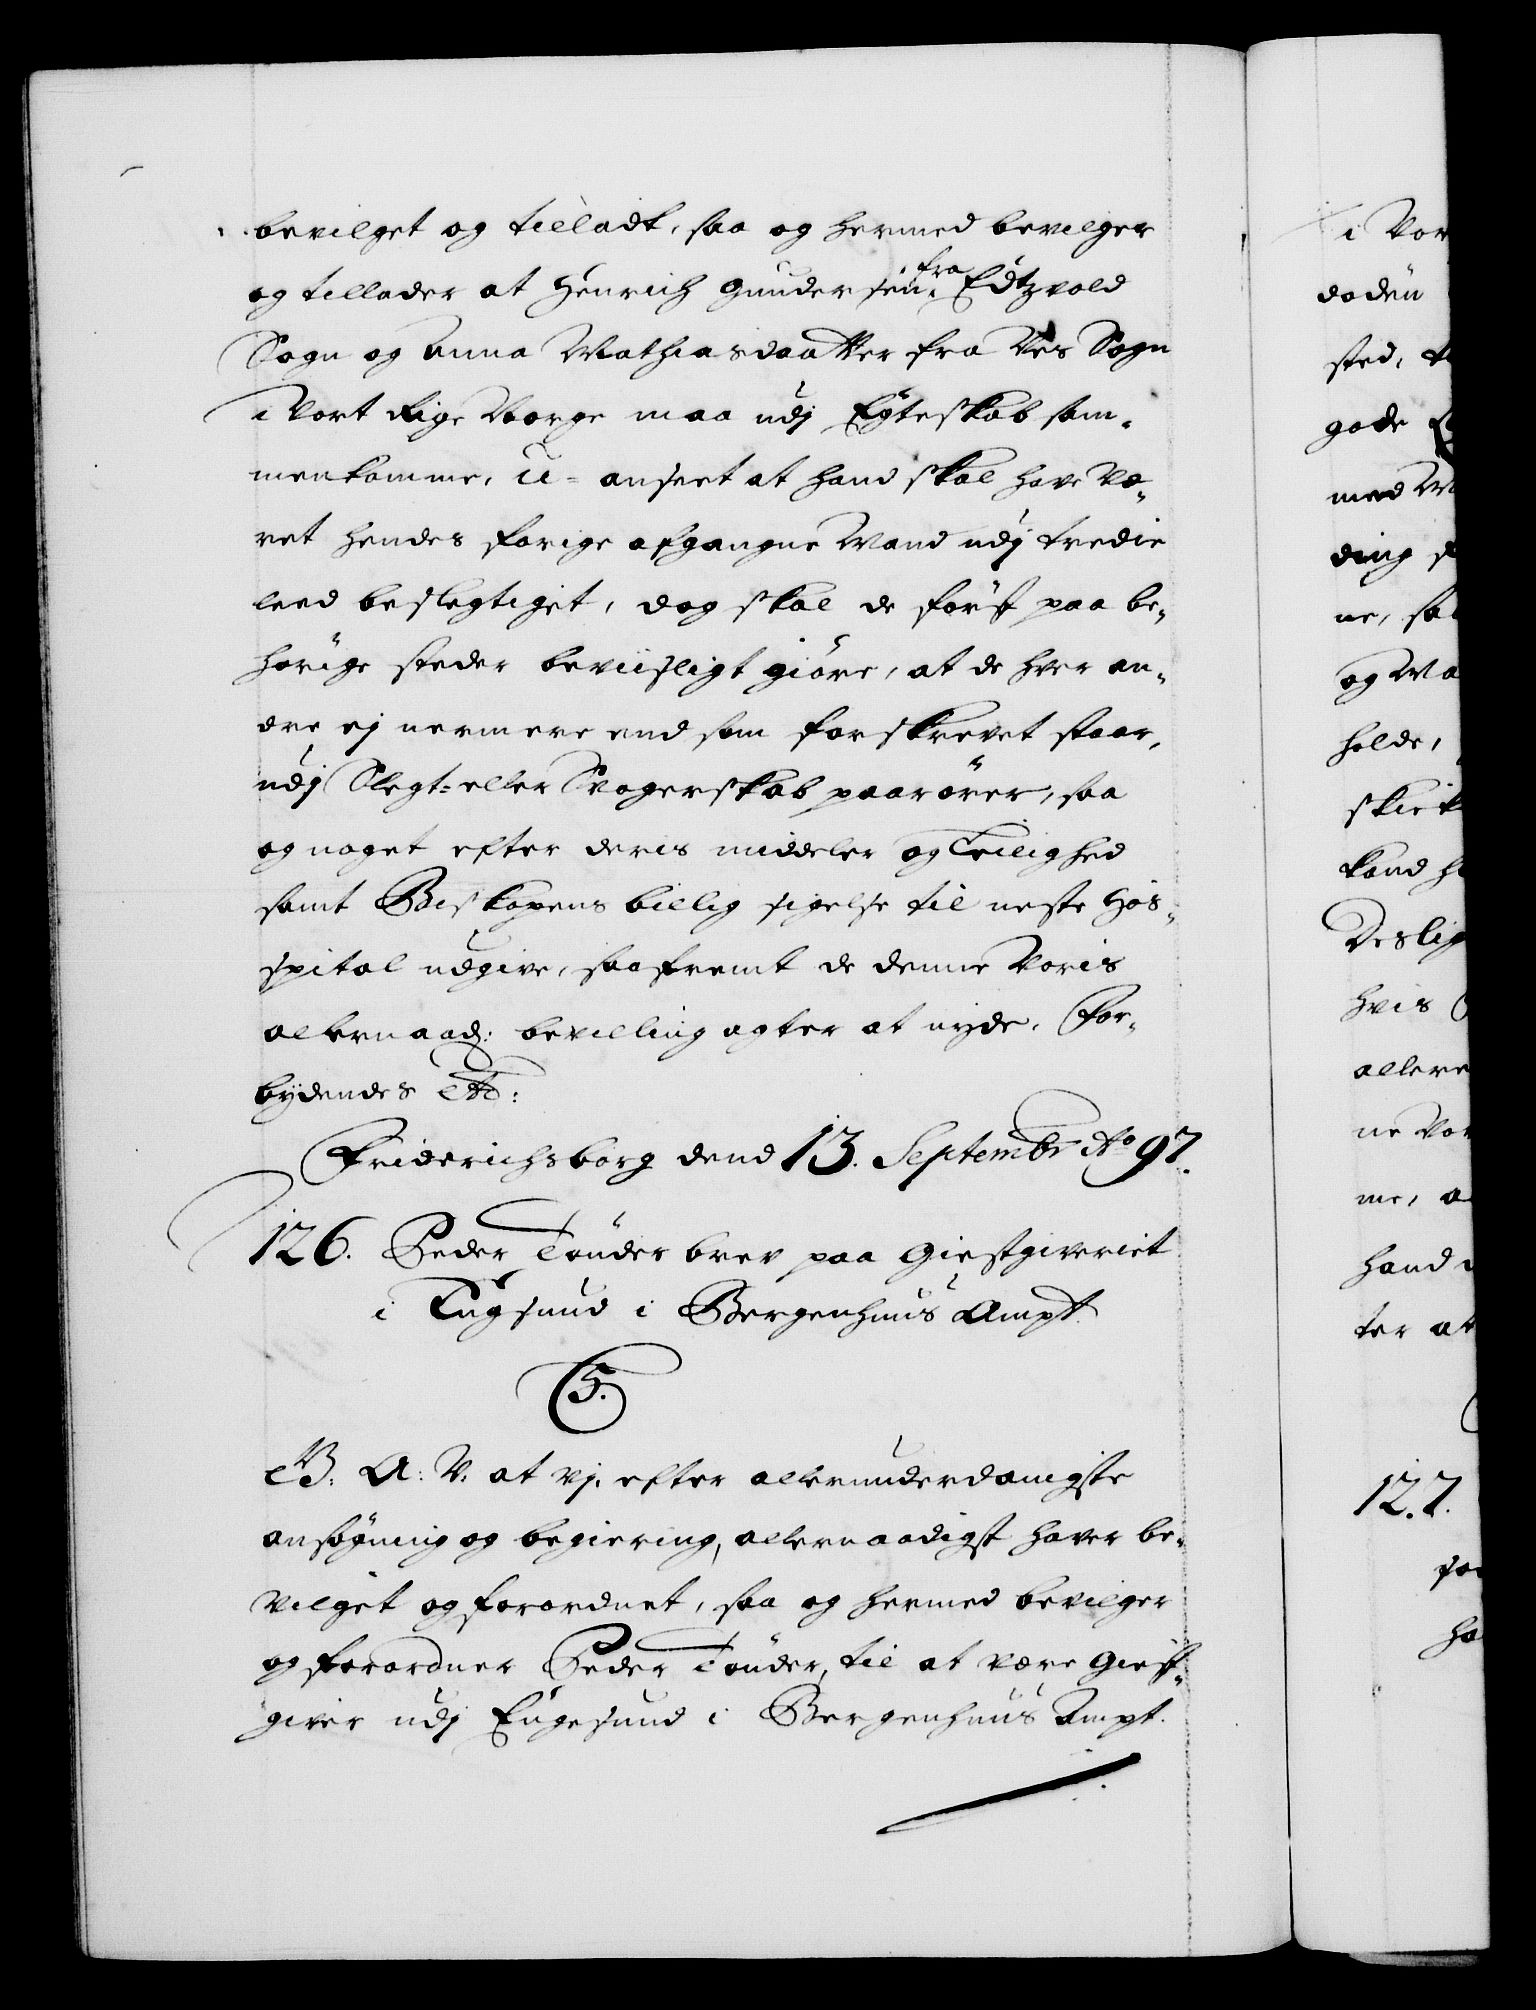 bevilget og tilladt, saa og hermed bevilger
og tillader at Henrich Gundersen fra Edtzvold
Sogn og Anna Mathiasdaatter fra Nes Sogn
i Vort Rige Norge maa udj Egteskab sam-
menkomme, u-anseet at hand skal have Væ-
ret hendes forige afgangne Mand udj tredie
leed beslegtiget, dog skal de först paa be-
hörige steder beviisligt giöre, at de hver an-
dre ej nermere end som forskrevet staar,
udj Slegt- eller Svogerskab paarörer, saa
og noget efter deris middeler og Leilighed
samt Biskopens billig sigelse til neste Hos-
spital udgive, saafremt de denne Voris
allernaad: bevilling agter at nyde. For-
bydendes etc:
Friderichsborg dend 13. Septembr Ao 97.
126. Peder Tönder brev paa Giestgiveriet
i Eugsund i Bergenhuus Ampt.
C5.
G. A: V. at Vj, efter allerunderdanigste
ansögning og begiering, allernaadigst haver be-
vilget og forordnet, saa og hermed bevilger
og forordner Peder Tönder, til at være Giest-
giver udj Eugesund i Bergenhuus Ampt.
i Vor
doden
sted,
gode
med
ding
ne, saa
og Ma
holde,
skick
kand h
Deslig
hvis
allere
ne Vor
me, a
hand
ter at
127.
ho